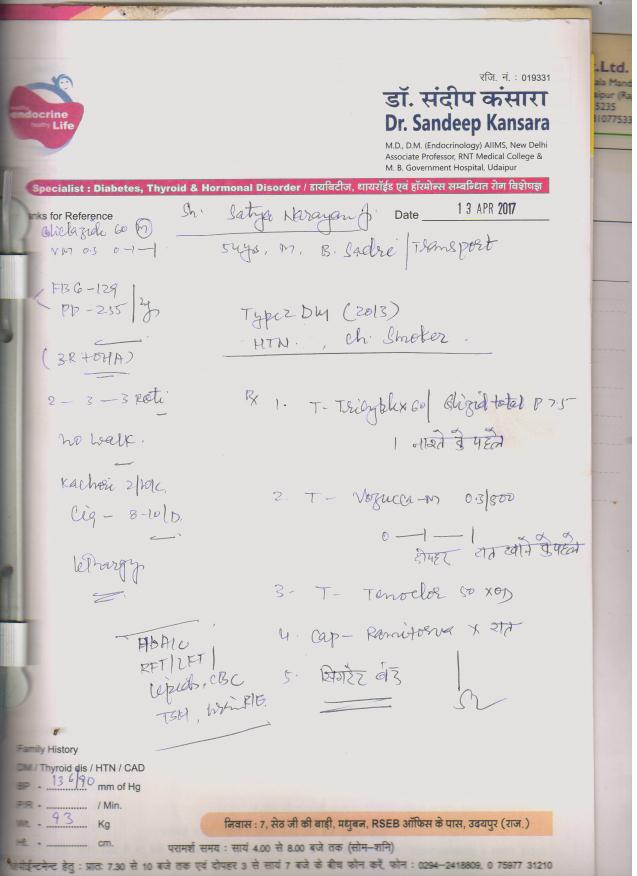 रजि. नं. : 019331
डॉ. संदीप कंसारा
Dr. Sandeep Kansara
M.D., D.M. (Endocrinology) AIIMS, New Delhi
Associate Professor, RNT Medical College &
M. B. Government Hospital, Udaipur
endocrine
healthy Life
t.Ltd.
5235
Specialist : Diabetes, Thyroid & Hormonal Disorder / डायबिटीज, थायरॉईड एवं हॉरमोन्स सम्बन्धित रोग विशेषज्ञ
anks for Reference
Sh. Satya Narayan Ji
Date 13 APR 2017
Gliclazide 60 M
VM 0.3 0-1-1
54yrs, M, B. Sadri / Transport
FBG-129
PP-255
Type 2 DM (2013)
HTN, Ch. Smoker.
(3R+OHA)
2 - 3 - 3 Roti
Rx 1. T-
60 / Glizid total P 7.5
1 नाश्ते के पहले
no walk.
Kachori 2/
Cig - 8-10/D.
2. T- Vozucca-M 0.3/500
0-1-1
दोपहर रात खाने के पहले
lethargy
3- T- Tenoclor 50 x OD
4. Cap- Ramitorva x रात
5. सिगरेट बंद
HbA1c
RFT/LFT/
Lipids, CBC
TSH, Urine R/E.
Family History
DM / Thyroid dis / HTN / CAD
BP - 136/90 mm of Hg
P/R - / Min.
Wt. - 93 Kg
Ht. - cm.
निवास : 7, सेठ जी की बाड़ी, मधुबन, RSEB ऑफिस के पास, उदयपुर (राज.)
परामर्श समय : सायं 4.00 से 8.00 बजे तक (सोम-शनि)
अपॉईन्टमेन्ट हेतु : प्रातः 7.30 से 10 बजे तक एवं दोपहर 3 से सायं 7 बजे के बीच फोन करें, फोन : 0294-2418809, 0 75977 31210